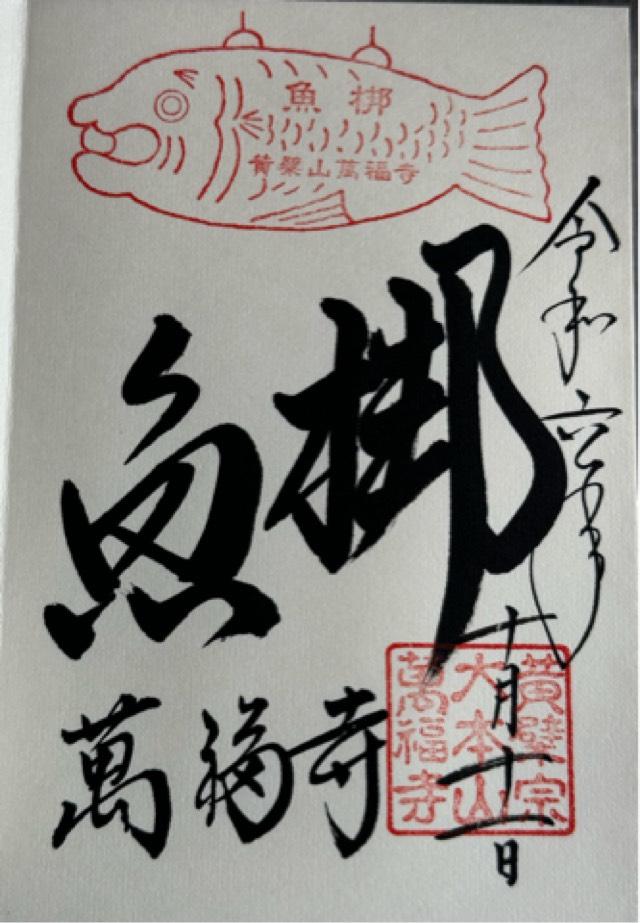 魚梆
黄檗山萬福寺
令和六年十月十一日
魚梆
萬福寺
黄檗宗
大本山
萬福寺